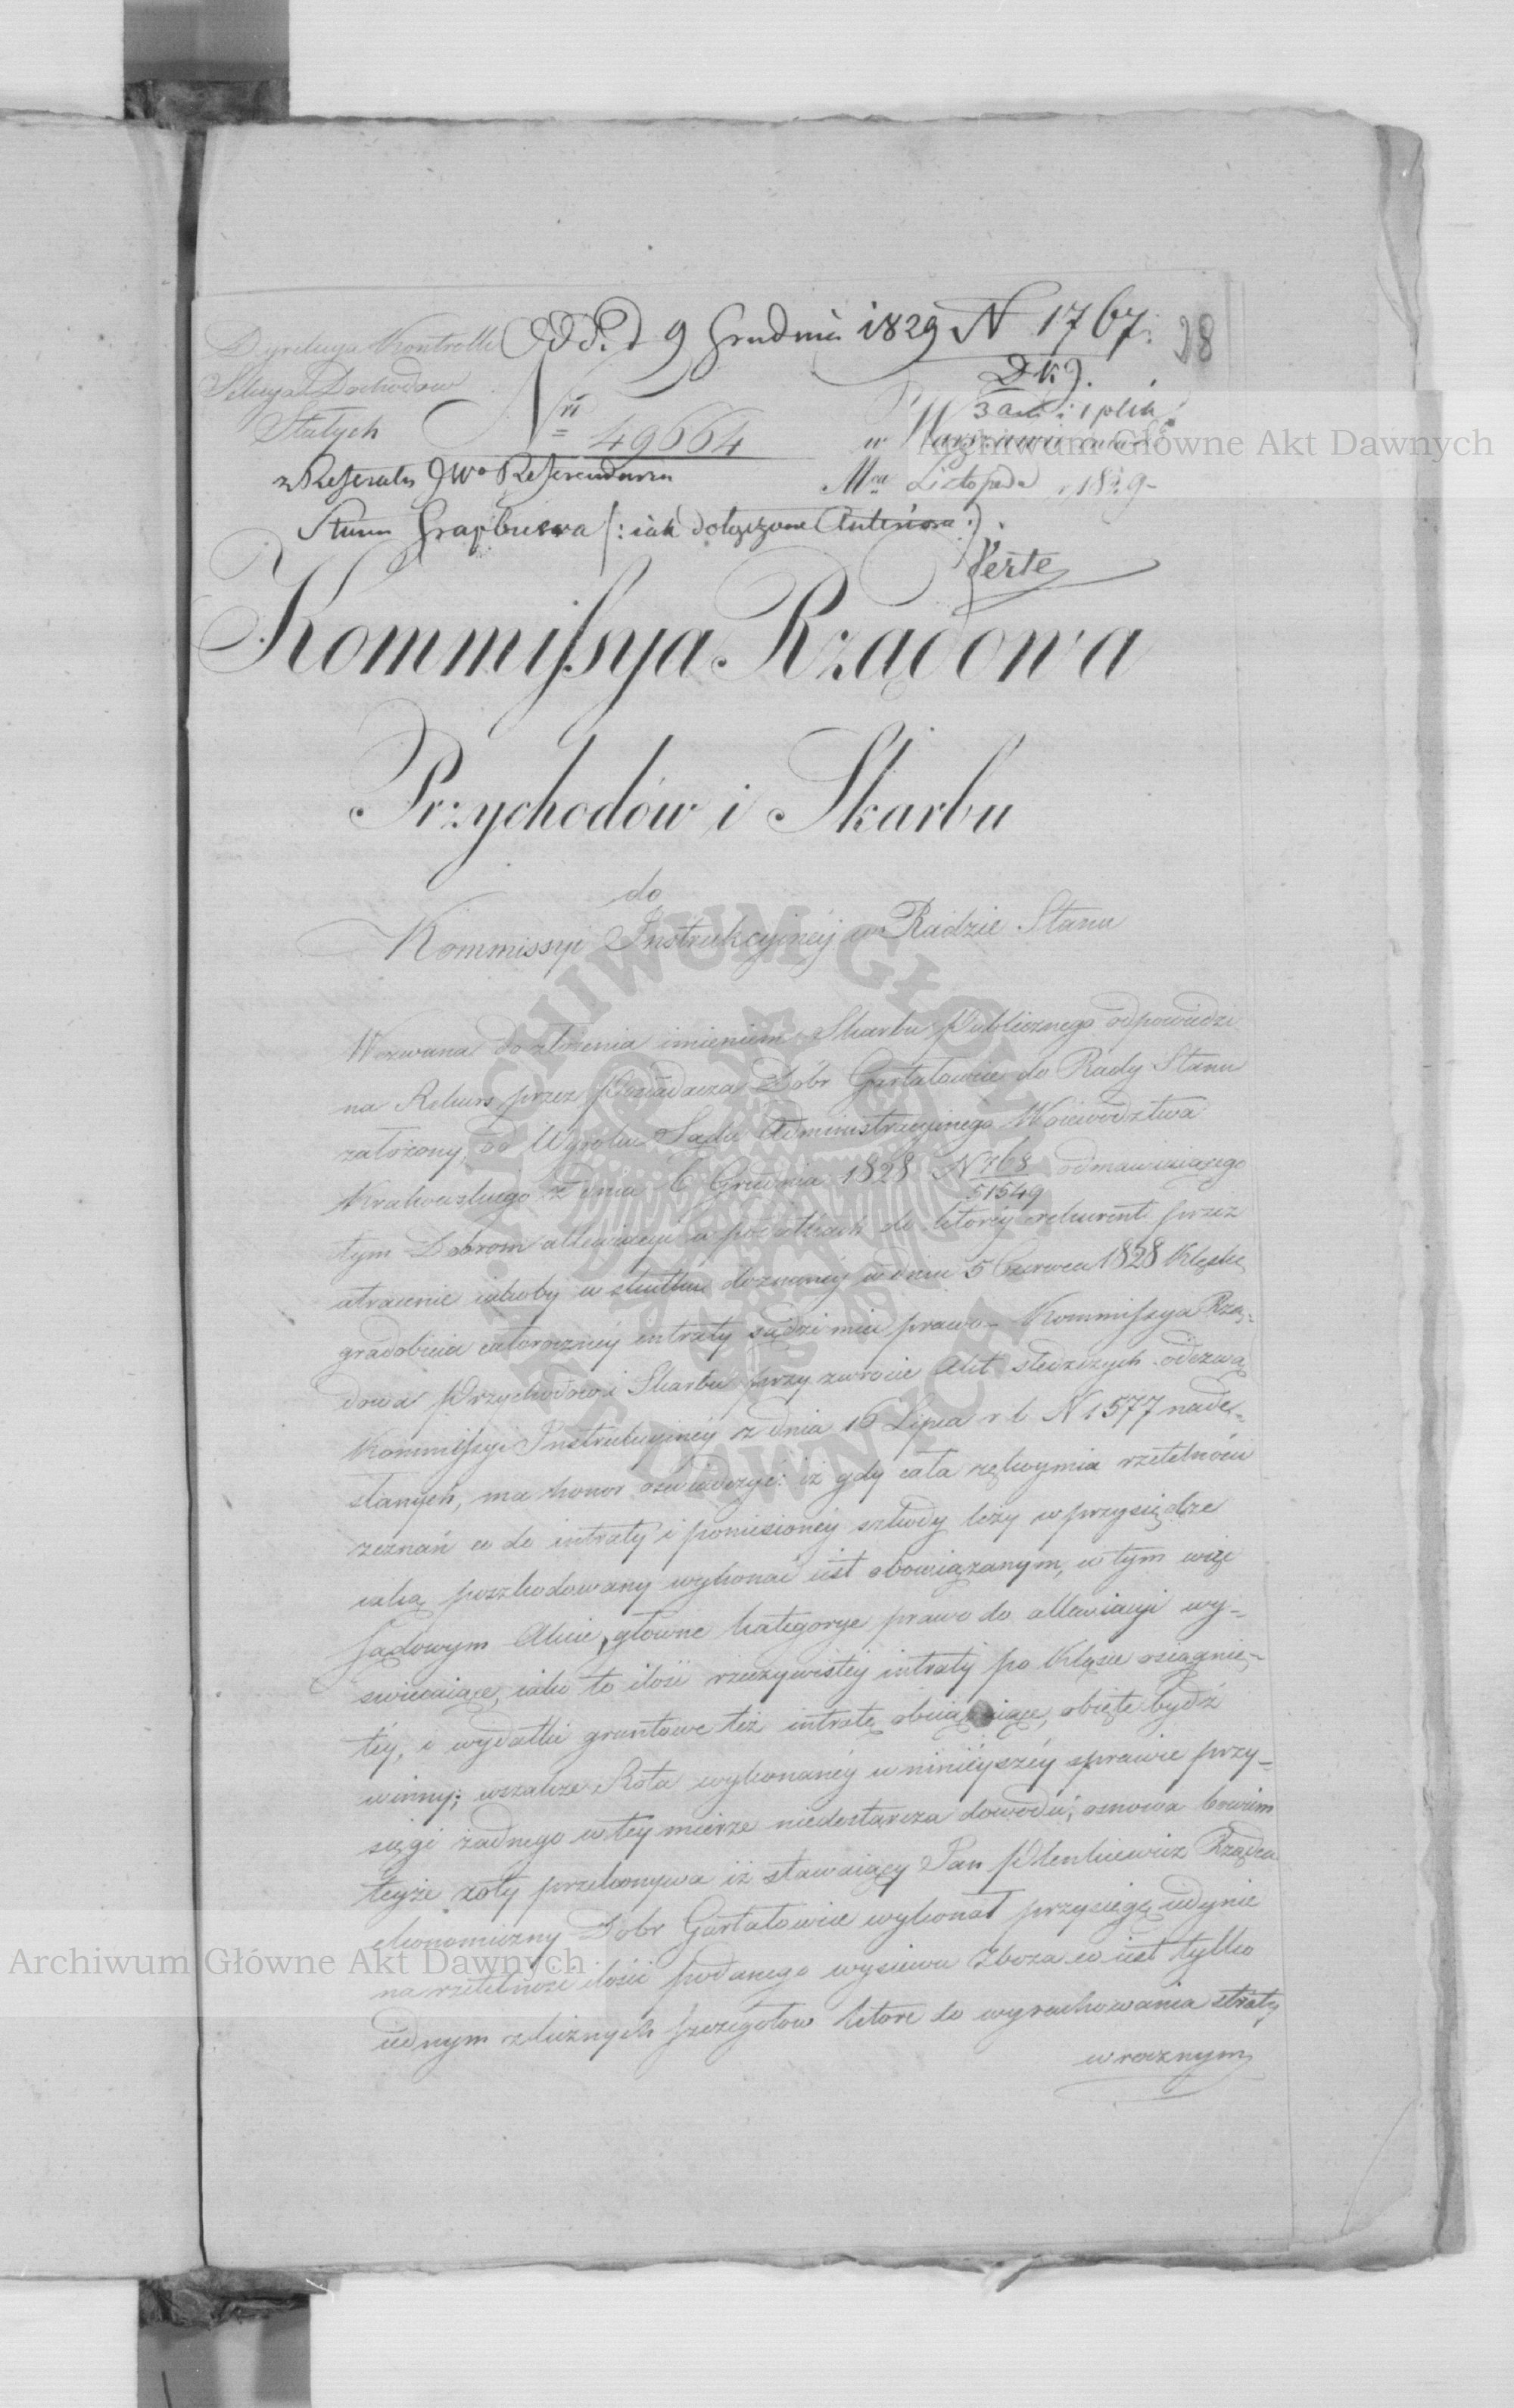 Dyrekcya Kontrolli Odd. d 9 Grudnia 1829 N 1767. 28
Sekcya Dochodów DK).
Stałych 3 Akt. i 1 plik.
Nrí 49664 w Warszawie dnia
z Referatu JWo Referendarza Mca Listopada r 1829
Sturm Grapbuera (: iak dołączone Anteriora :).
Verte
Kommissya Rządowa
Przychodów i Skarbu
do
Kommissyi Instrukcyjnéj w Radzie Stanu
Wezwana do złożenia imieniem Skarbu Publicznego odpowiedzi
na Rekurs przez Posiadacza Dóbr Gartatowice do Rady Stanu
założony, od Wyroku Sądu Administracyjnego Woiewództwa
Krakowskiego z dnia 6 Grudnia 1828 N 768/51549 odmawiaiącego
tym Dobrom allewiacyi w podatkach do któréj rekurent przez
utracenie iakoby w skutku doznanéj w dniu 5 Czerwca 1828 Klęski
gradobicia całorocznéj intraty sądzi mieć prawo – Kommissya Rzą-
dowa Przychodów i Skarbu przy zwrocie Akt śledczych odezwą
Kommissyi Instrukcyjnéj z dnia 16 Lipca r b N 1577 nade-
słanych, ma honor oświadczyć: iż gdy cała rękoymia rzetelności
zeznań co do intraty i poniesionéj szkody leży w przysiędze
iaką poszkodowany wykonać iest obowiązanym, w tym więc
Sądowym Akcie, główne kategorye prawo do allewiacyi wy-
świecaiące, iako to ilość rzeczywistéj intraty po Klęsce osiągnię-
téj, i wydatki gruntowe też intratę obciążaiące, obięte bydź
winny; wszakże Rota wykonanéj w ninieyszéj sprawie przy-
sięgi żadnego w tey mierze niedostarcza dowodu, osnowa bowiem
teyże roty przekonywa iż stawaiący Pan Plenkiewicz Rządca
ekonomiczny Dobr Gartatowice wykonał przysięgę iedynie
na rzetelność ilości podanego wysiewu Zboża co iest tylko
iednym z licznych szczegółów które do wyrachowania straty
w rocznym
Archiwum Główne Akt Dawnych
Archiwum Główne Akt Dawnych
ARCHIWUM GŁÓWNE AKT DAWNYCH